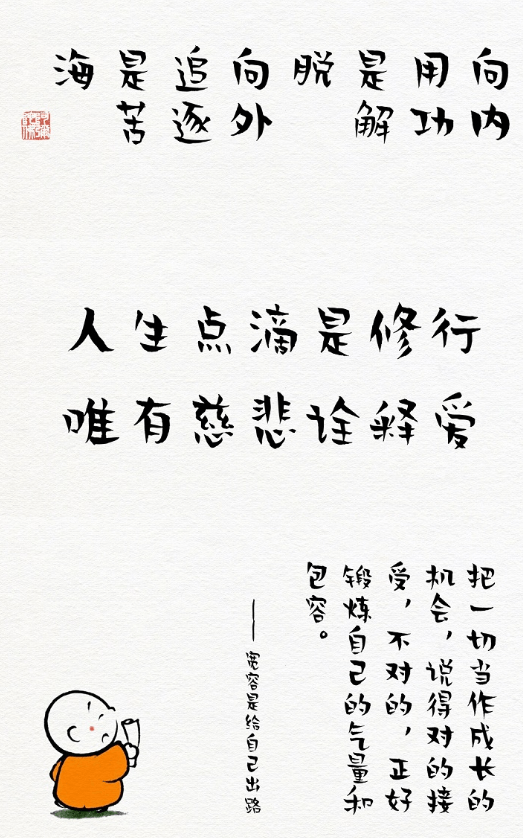 向内
用功
是解
脱
向外
追逐
是苦
海
人生点滴是修行
唯有慈悲诠释爱
把一切当作成长的
机会，说得对的接
受，不对的，正好
锻炼自己的气量和
包容。
——宽容是给自己出路